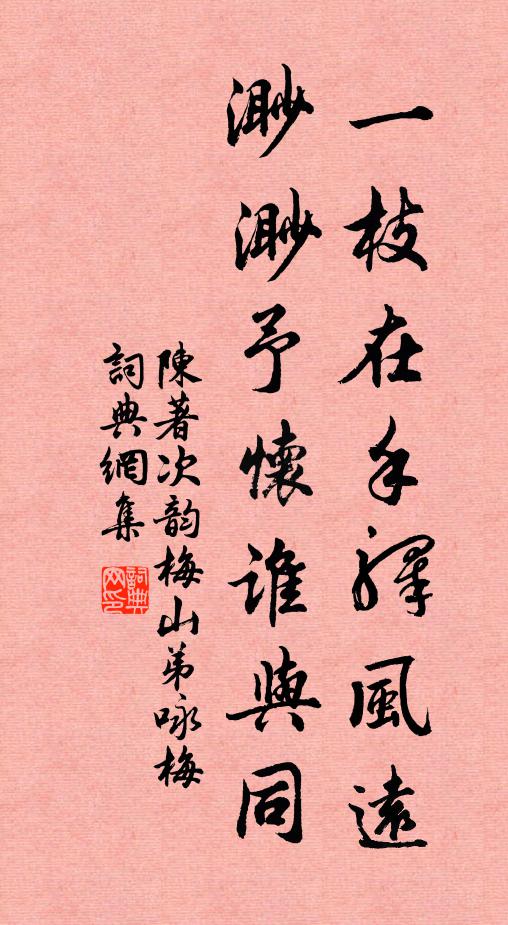 一枝在手驛風遠
渺渺予懷誰與同
陳著次韵梅山弟咏梅
詞典網集
詞典网印